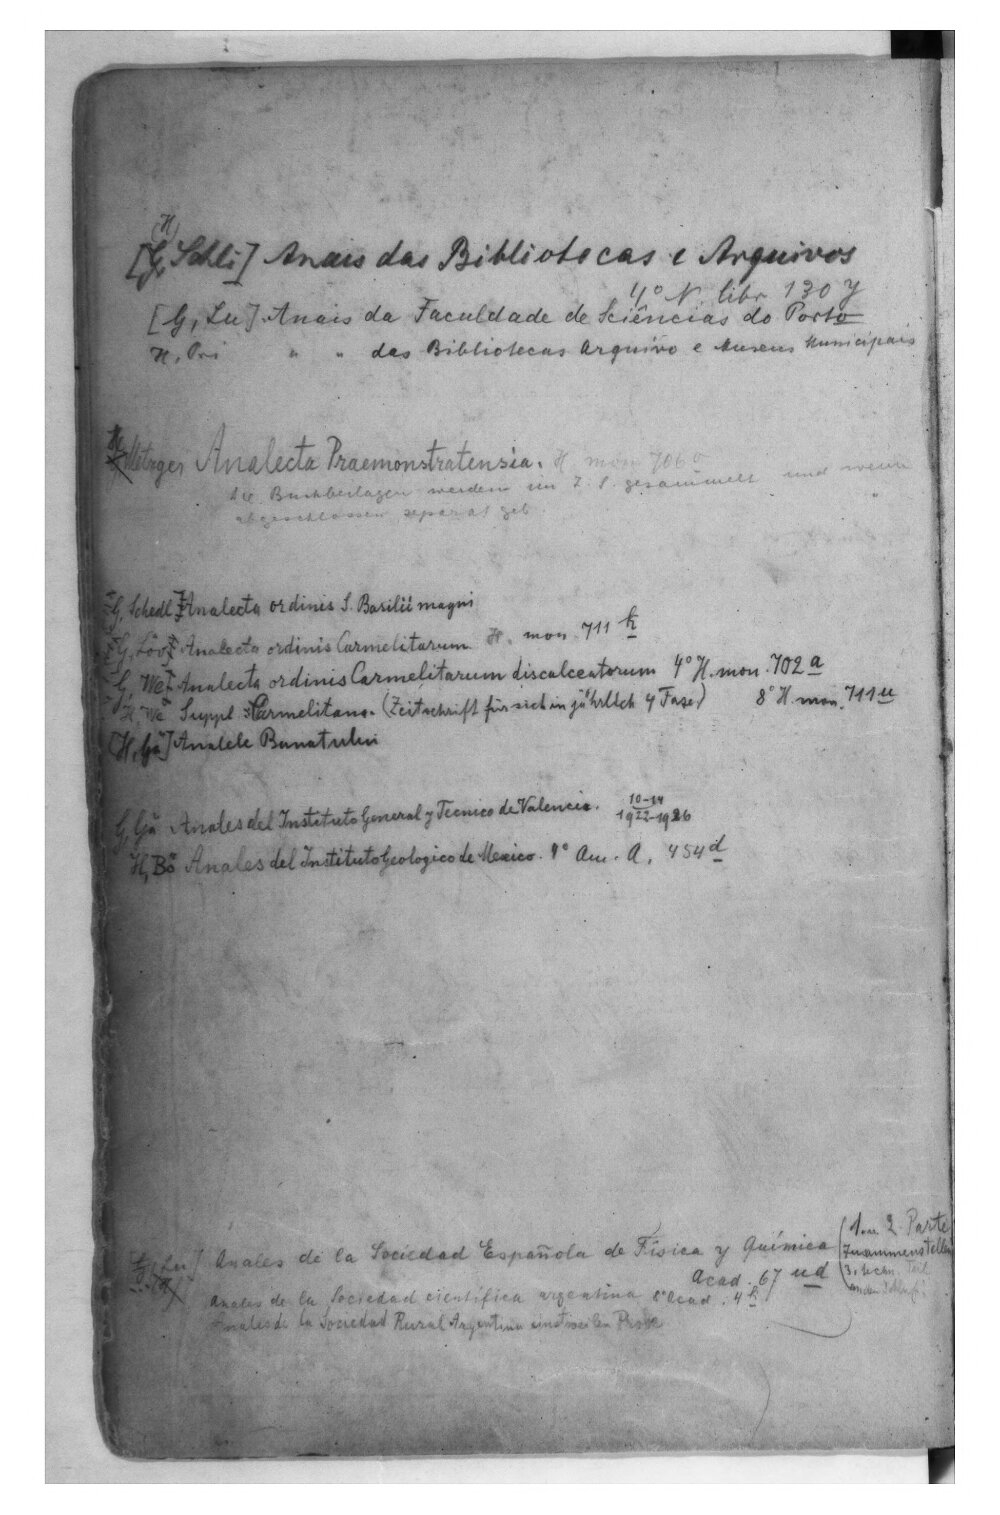 (H)
[G, Schli] Anais das Bibliotecas e Arquivos
4° N. libr. 130 y
[G, Lu] Anais da Faculdade de Sciências do Porto
H, Pri " " das Bibliotecas Arquivo e Museus Municipais
H
Metzger Analecta Praemonstratensia. H. mon 706
Die Buchbeilagen werden im Z. S. gesammelt und wenn
abgeschlossen separat geb.
[G, Schedl] Analecta ordinis S. Basilii magni
[G, Löv] Analecta ordinis Carmelitarum H. mon. 711 k
[G, We] Analecta ordinis Carmelitarum discalceatorum 4° H. mon. 702 a
H, We Suppl.: Carmelitana. (Zeitschrift für sich in jährlich 4 Fasc) 8° H. mon. 711 u
[H, Gä] Analele Banatului
G, Gä Anales del Instituto General y Tecnico de Valencia. 10-14 1922-1926
H, Bö Anales del Instituto Geologico de Mexico. 4° Am. A. 454 d
[G, Lu] Anales de la Sociedad Española de Física y Química (1. u. 2. Parte
Acad. 67 ud Zusammenstellen
Anales de la Sociedad científica argentina 8° Acad. 4 k 3. techn. Teil
Anales de la Sociedad Rural Argentina